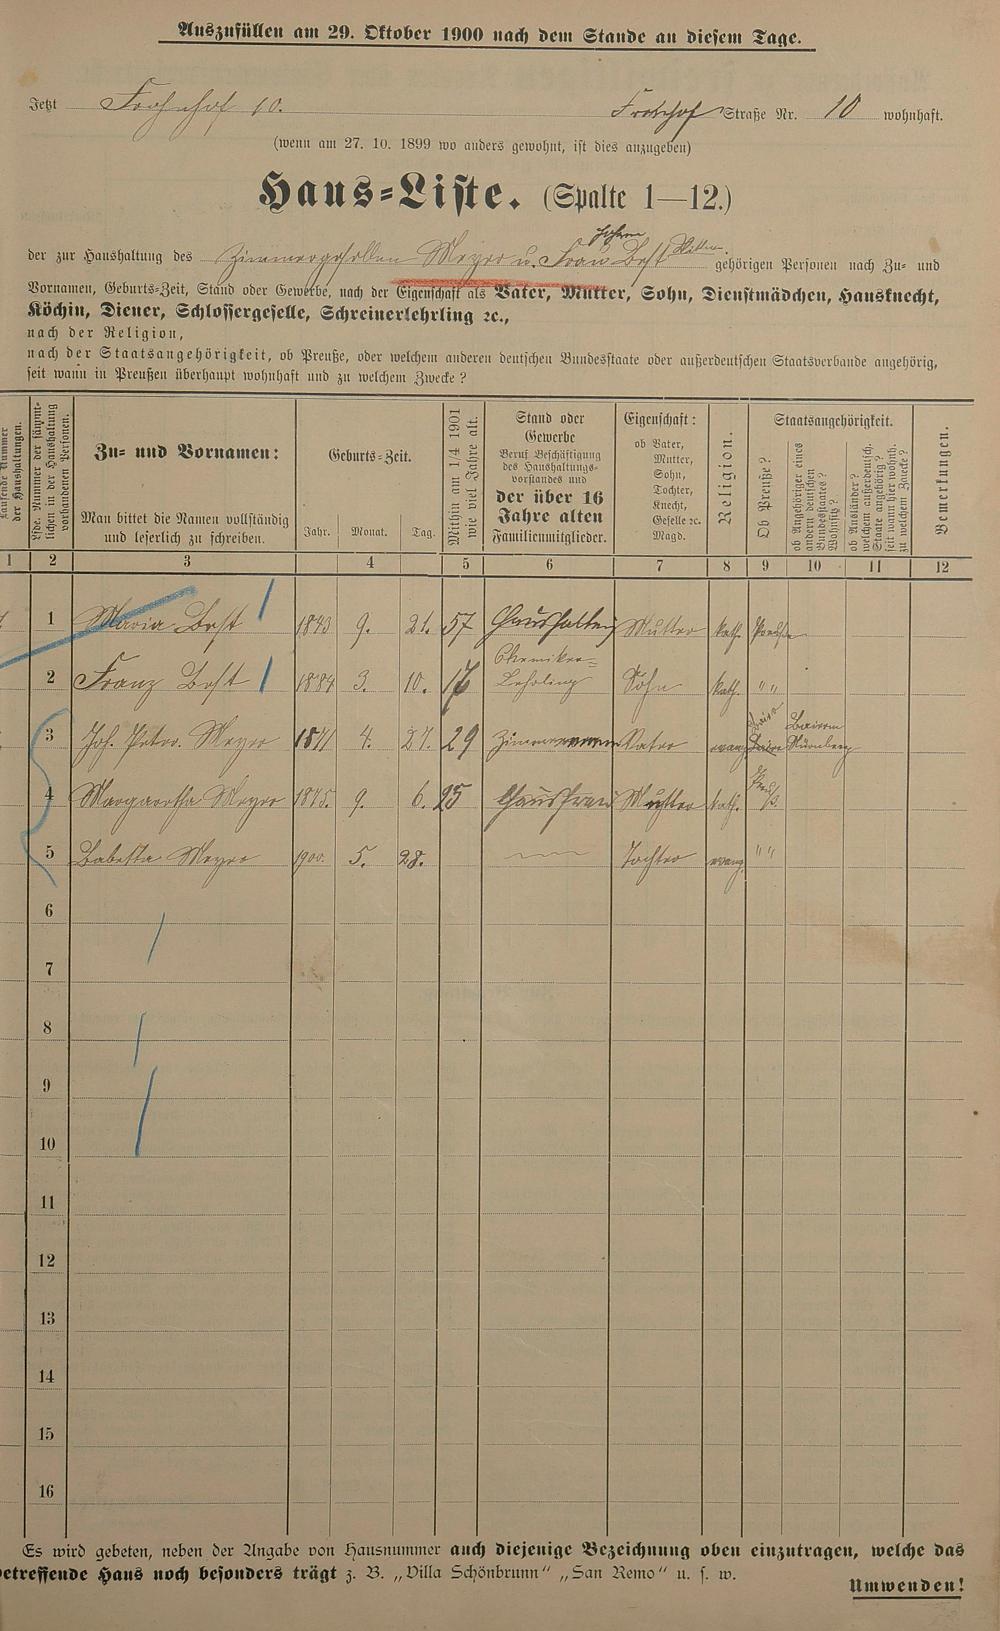 Auszufüllen am 29. Oktober 1900 nach dem Stande an diesem Tage.
Jetzt Frohnhof 10. Frohnhof Straße Nr. 10 wohnhaft.
(wenn am 27. 10. 1899 wo anders gewohnt, ist dies anzugeben)
Haus-Liste. (Spalte 1—12.)
der zur Haushaltung des Zimmergesellen Meyer u. Frau Best gehörigen Personen nach Zu- und
Vornamen, Geburts-Zeit, Stand oder Gewerbe, nach der Eigenschaft als Vater, Mutter, Sohn, Dienstmädchen, Hausknecht,
Köchin, Diener, Schlossergeselle, Schreinerlehrling ꝛc.,
nach der Religion,
nach der Staatsangehörigkeit, ob Preuße, oder welchem anderen deutschen Bundesstaate oder außerdeutschen Staatsverbande angehörig,
seit wann in Preußen überhaupt wohnhaft und zu welchem Zwecke?
Laufende Nummer
der Haushaltungen.
Lfde. Nummer der sämmt-
lichen in der Haushaltung
vorhandenen Personen.
Zu- und Vornamen:
Man bittet die Namen vollständig
und leserlich zu schreiben.
Geburts-Zeit.
Jahr. Monat. Tag.
Mithin am 1/4 1901
wie viel Jahre alt.
Stand oder
Gewerbe
Beruf Beschäftigung
des Haushaltungs-
vorstandes und
der über 16
Jahre alten
Familienmitglieder.
Eigenschaft:
ob Vater,
Mutter,
Sohn,
Tochter,
Knecht,
Geselle ꝛc.
Magd.
Religion.
Staatsangehörigkeit.
Ob Preuße?
ob Angehöriger eines
andern deutschen
Bundesstaates?
Wohnsitz?
ob Ausländer?
welchem außerdeutsch.
Staate angehörig?
seit wann hier wohnh.
zu welchem Zwecke?
Bemerkungen.
1 2 3 4 5 6 7 8 9 10 11 12
1 Maria Best 1843 9. 21. 57 Haushaltung Mutter kath. Preuße
2 Franz Best 1884 3. 10. 16 Chemiker-
Lehrling Sohn kath. " "
3 Joh. Peter. Meyer 1871 4. 27. 29 Vater evang. Bairn
Nürnberg
4 Margaretha Meyer 1875 9. 6. 25 Hausfrau Mutter kath. Preuß.
5 Babetta Meyer 1900. 5. 28. Tochter evang. " "
6
7
8
9
10
11
12
13
14
15
16
Es wird gebeten, neben der Angabe von Hausnummer auch diejenige Bezeichnung oben einzutragen, welche das
betreffende Haus noch besonders trägt z. B. „Villa Schönbrunn" „San Remo" u. s. w.
Umwenden!